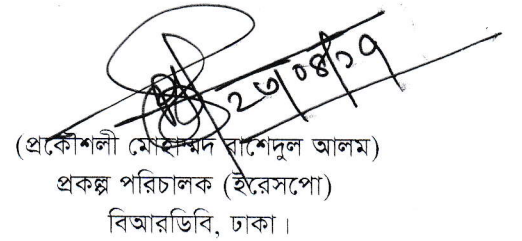 ২৩|০৪|১৭
(প্রকৌশলী মোহাম্মদ রাশেদুল আলম)
প্রকল্প পরিচালক (ইরেসপো)
বিআরডিবি, ঢাকা।